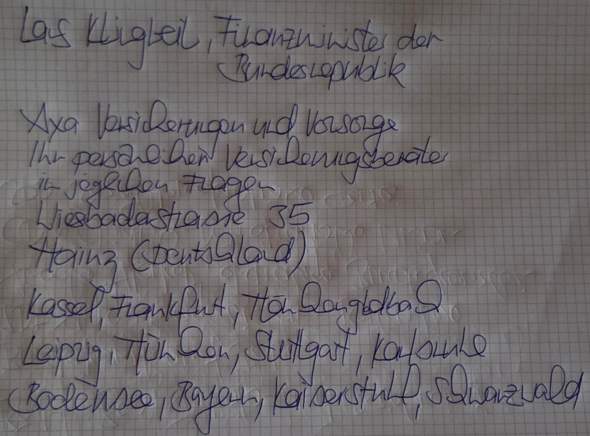 Lars Klingbeil, Finanzminister der
Bundesrepublik
Axa Versicherungen und Vorsorge
Ihr persönlicher Versicherungsberater
in jeglichen Fragen
Wiesbadenstrasse 35
Mainz (Deutschland)
Kassel, Frankfurt, Mönchengladbach
Leipzig, München, Stuttgart, Karlsruhe
Bodensee, Bayern, Kaiserstuhl, Schwarzwald